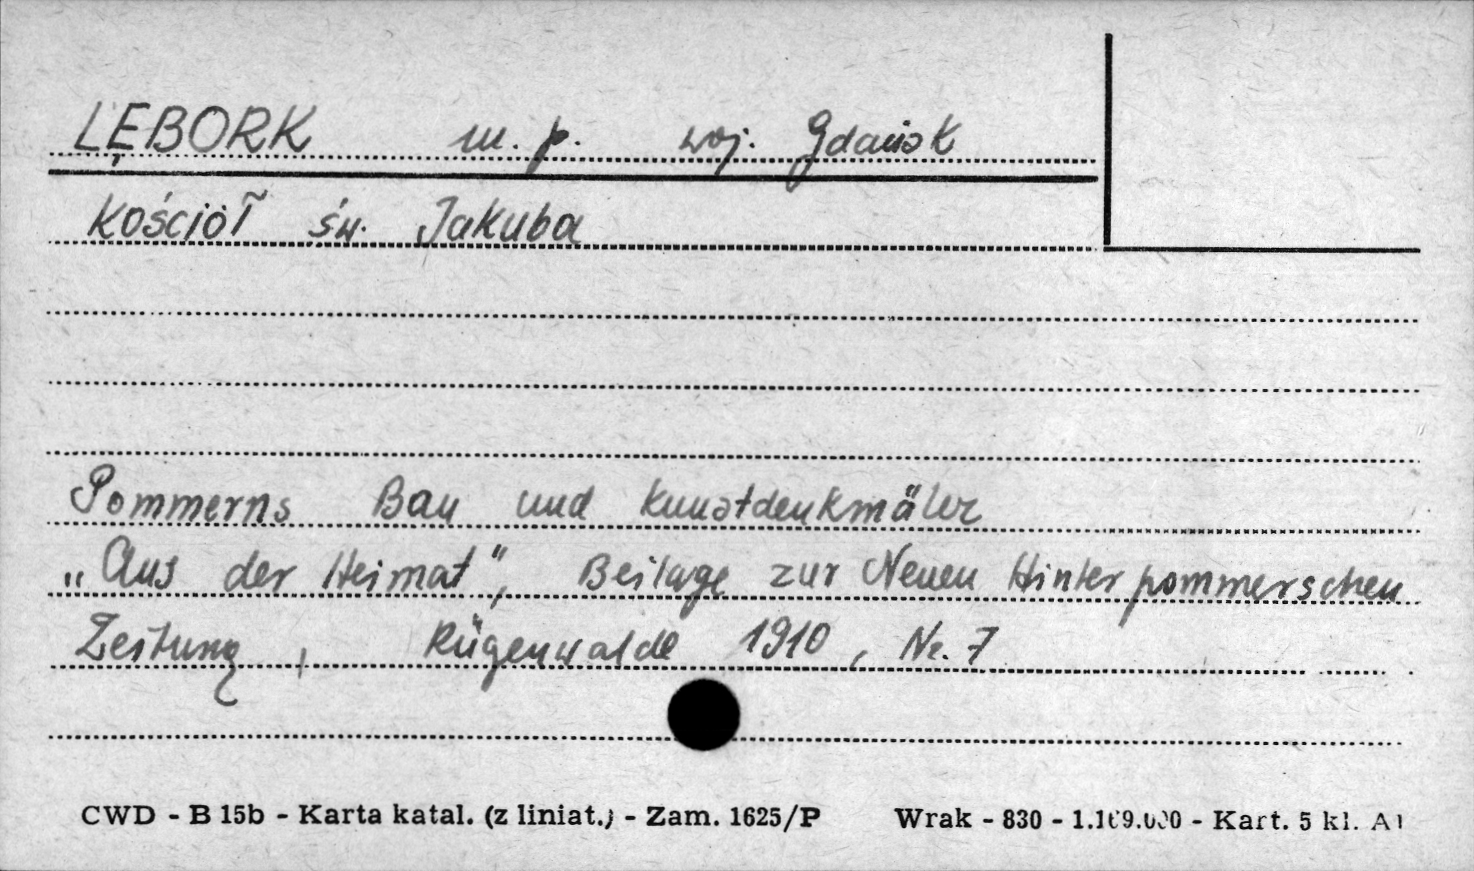 LĘBORK m. p. woj. Gdańsk
Kościół św. Jakuba
Pommerns Bau und Kunstdenkmäler
„Aus der Heimat", Beilage zur Neuen Hinterpommerschen
Zeitung, Rügenwalde 1910, Nr. 7
CWD - B 15b - Karta katal. (z liniat.) - Zam. 1625/P Wrak - 830 - - Kart. 5 kl. A1